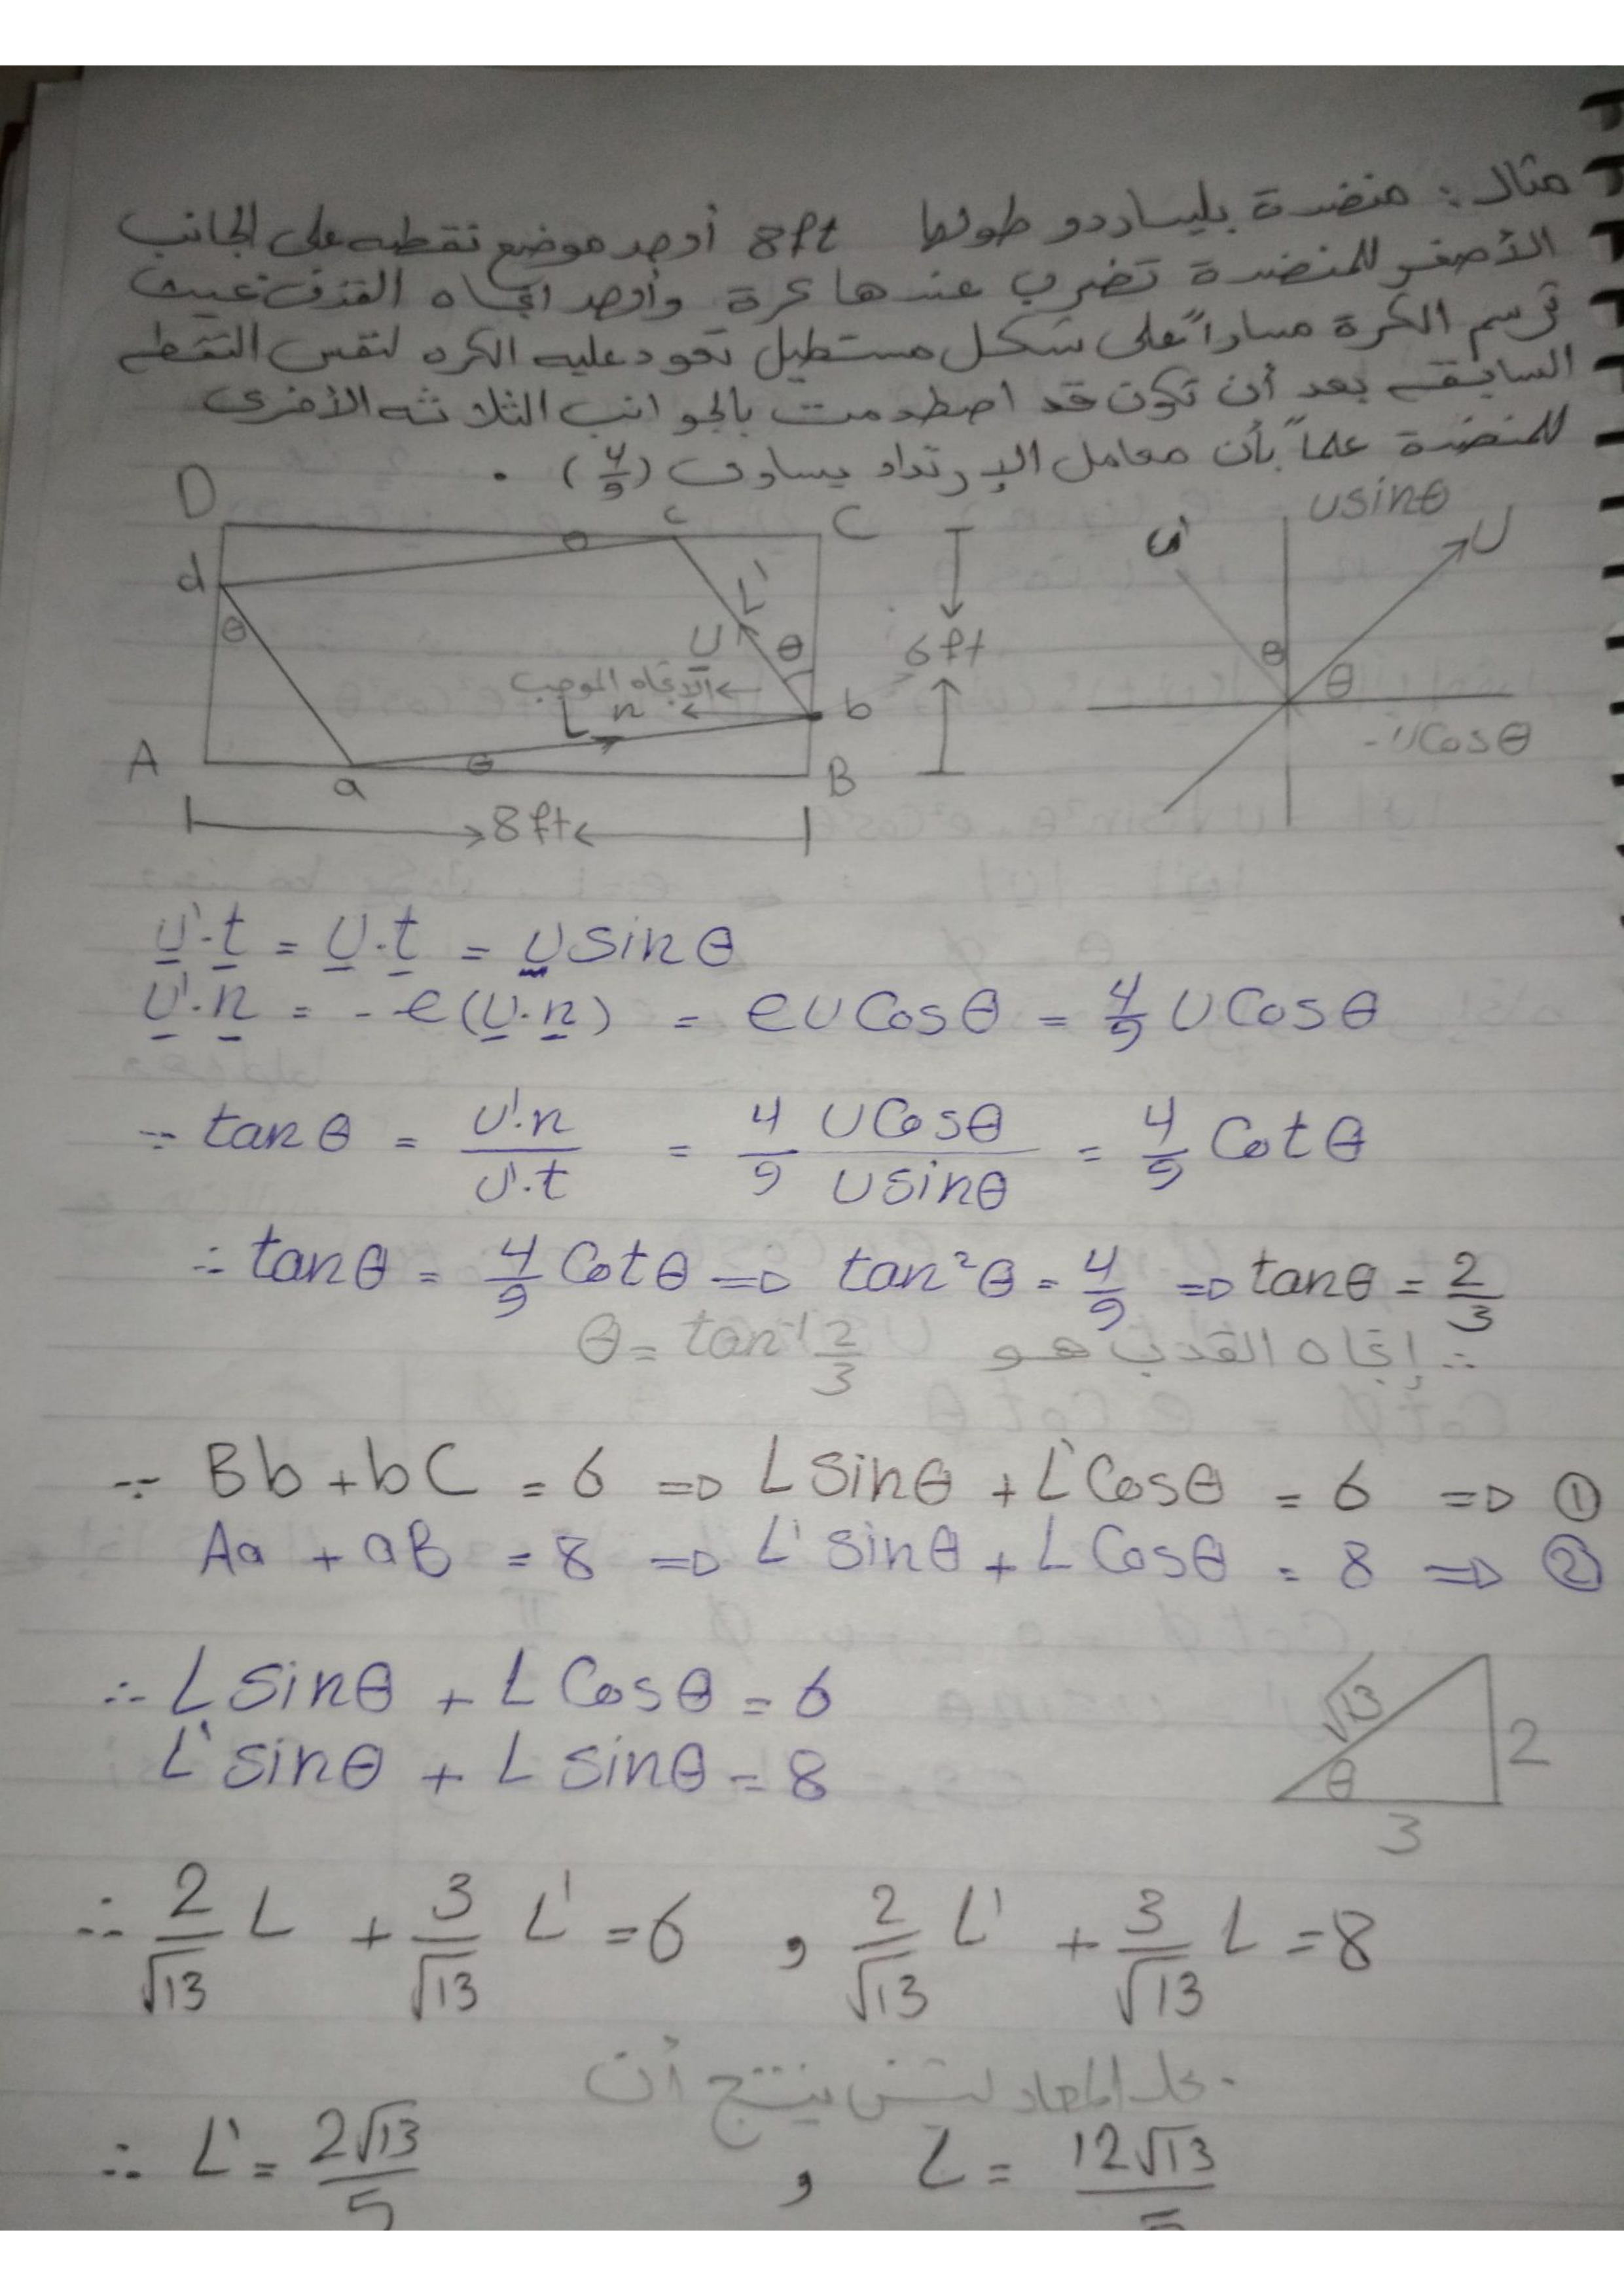 مثال : منضدة بليساردو طولها 8ft أوجد موضع نقطه على الجانب
الأصغر للمنضدة تضرب عندها كرة وأوجد اتجاه القذف بحيث
ترسم الكرة مساراً على شكل مستطيل تعود عليه الكره لنفس النقطه
السابقه بعد أن تكون قد اصطدمت بالجوانب الثلاثه الأخرى
للمنضدة علماً بأن معامل الإرتداد يساوى (4/9) .
D c C
d θ L' U' θ 6ft
الاتجاه الموجب
L n b
A a θ B
8ft
usinθ
u' U
θ θ
-ucosθ
U'.t = U.t = U sinθ
U'.n = - e(U.n) = eU Cosθ = 4/9 U Cosθ
∵ tanθ = U'.n / U'.t = 4/9 U Cosθ / U sinθ = 4/9 Cotθ
∴ tanθ = 4/9 Cotθ => tan²θ = 4/9 => tanθ = 2/3
∴ إتجاه القذف هو θ = tan⁻¹ 2/3
∵ Bb + bC = 6 => L sinθ + L' Cosθ = 6 => ①
Aa + aB = 8 => L' sinθ + L Cosθ = 8 => ②
∴ L sinθ + L Cosθ = 6
L' sinθ + L sinθ = 8
√13 2 θ 3
∴ 2/√13 L + 3/√13 L' = 6 , 2/√13 L' + 3/√13 L = 8
بحل المعادلتين ينتج أن
∴ L' = 2√13/5 , L = 12√13/5